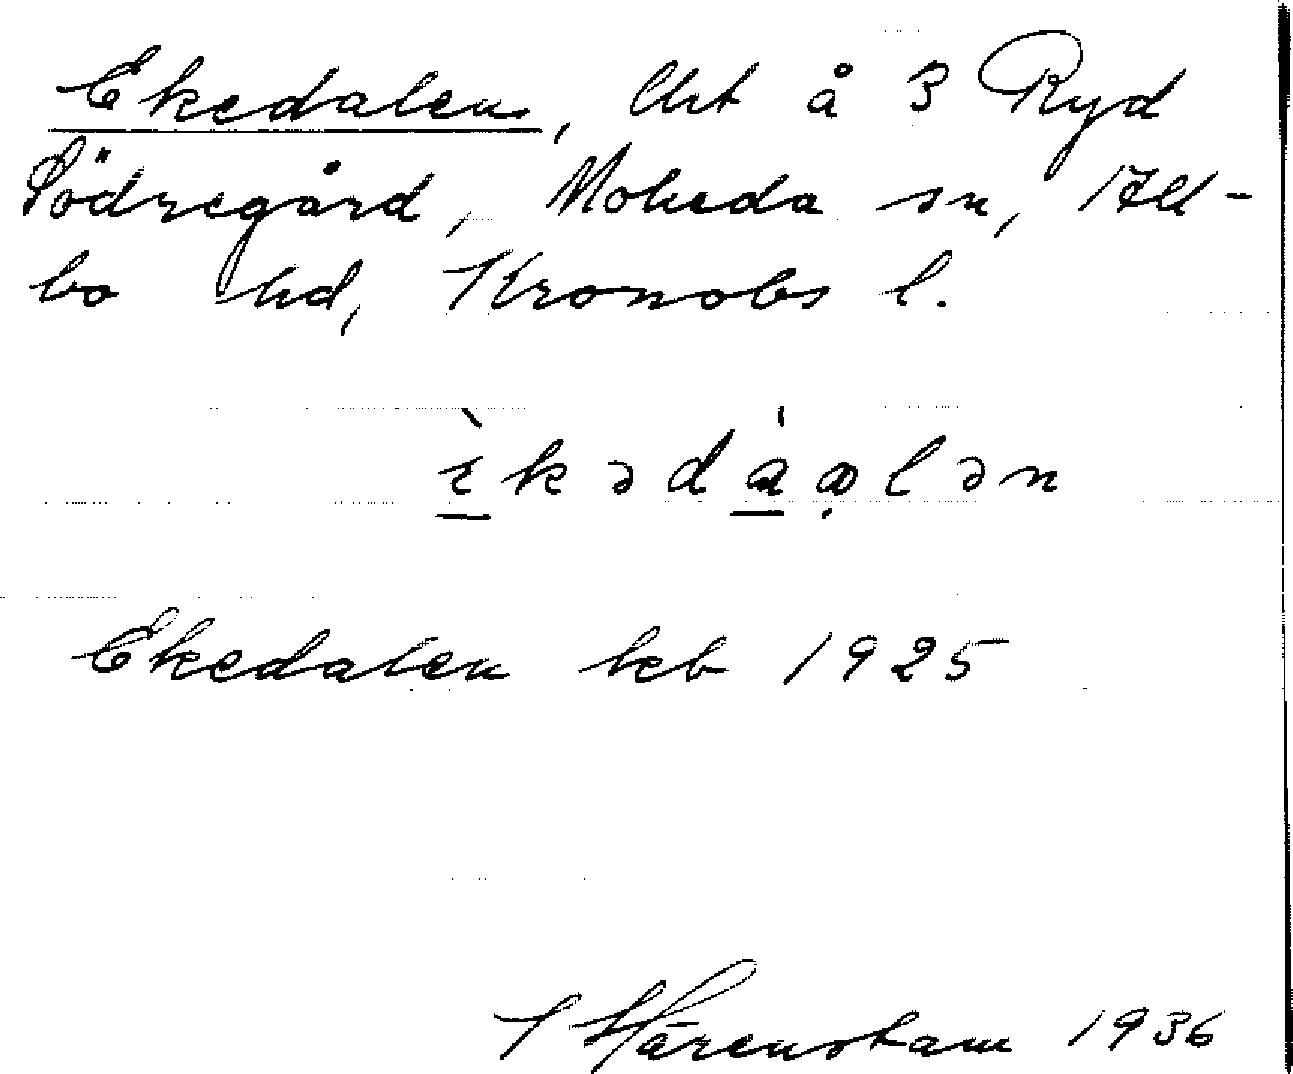 Ekedalen, lht å 3 Ryd
Södregård, Moheda sn, All-
bo hd, Kronobs l.
ìkədàαlən
Ekedalen keb 1925
Härenstam 1936